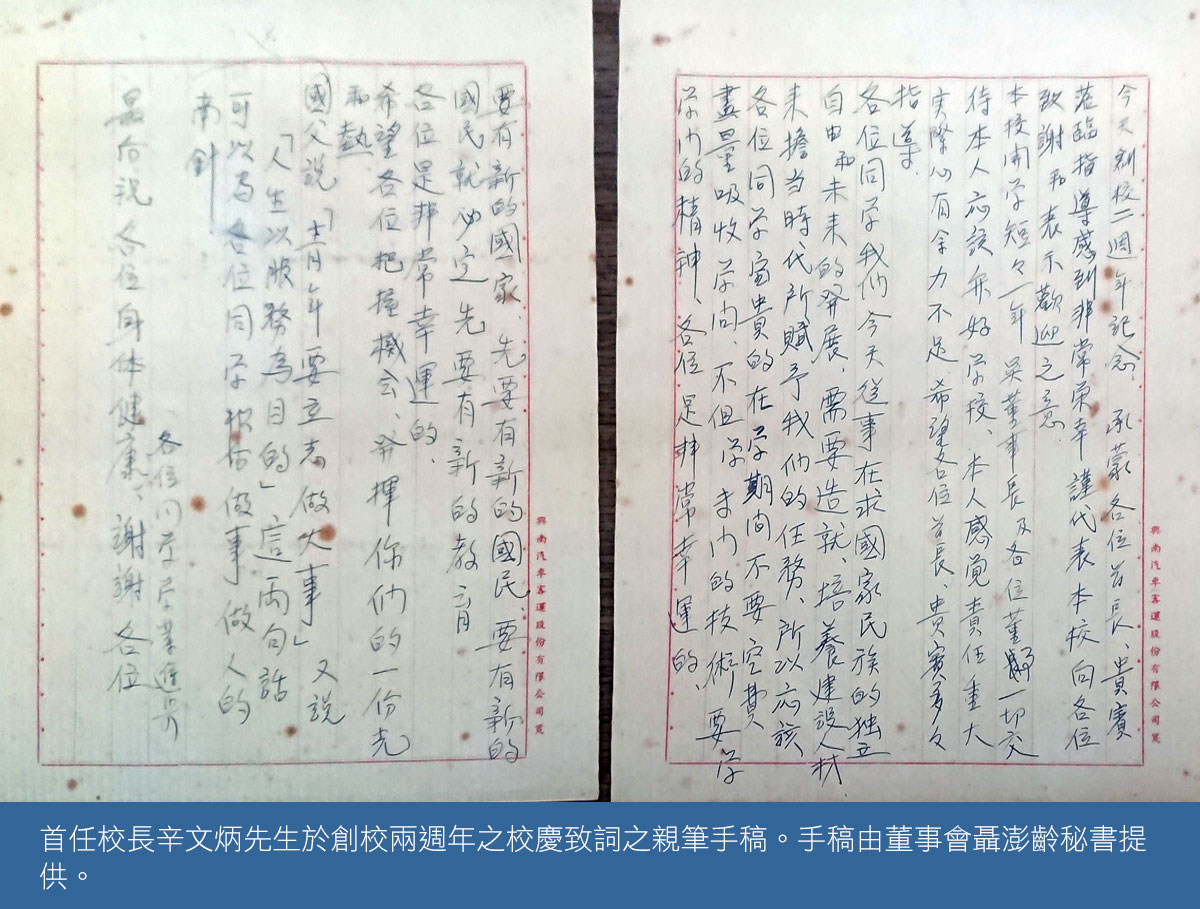 今天創校二週年記念、承蒙各位首長、貴賓
蒞臨指導感到非常荣幸謹代表本校向各位
致謝和表示歡迎之意.
本校開学短々一年 吴董事長及各位董 一切交
待本人応該弁好学校、本人感覚責任重大
実際心有余力不足、希望各位首長、貴賓多々
指導.
各位同学我们今天從事在求國家民族的独立
自由和未来的発展、需要造就、培養建設人材、
来擔当時代所賦予我们的任務、所以応該
各位同学宝貴的在学期间不要空費
盡量吸收学问、不但学专门的技術要学
学门的精神、各位是非常幸運的、
興南汽車客運股份有限公司箋
要有新的國家 先要有新的國民、要有新的
國民就必定先要有新的教育
各位是非常幸運的、
希望各位把握機会、発揮你们的一份光
和熱
國父説「青年要立志做大事」又説
「人生以服務為目的」、這両句話
可以為各位同学 做事做人的
南針
最后祝各位身体健康、謝謝各位
各位同学学業進步
興南汽車客運股份有限公司箋
首任校長辛文炳先生於創校兩週年之校慶致詞之親筆手稿。手稿由董事會聶澎齡秘書提
供。